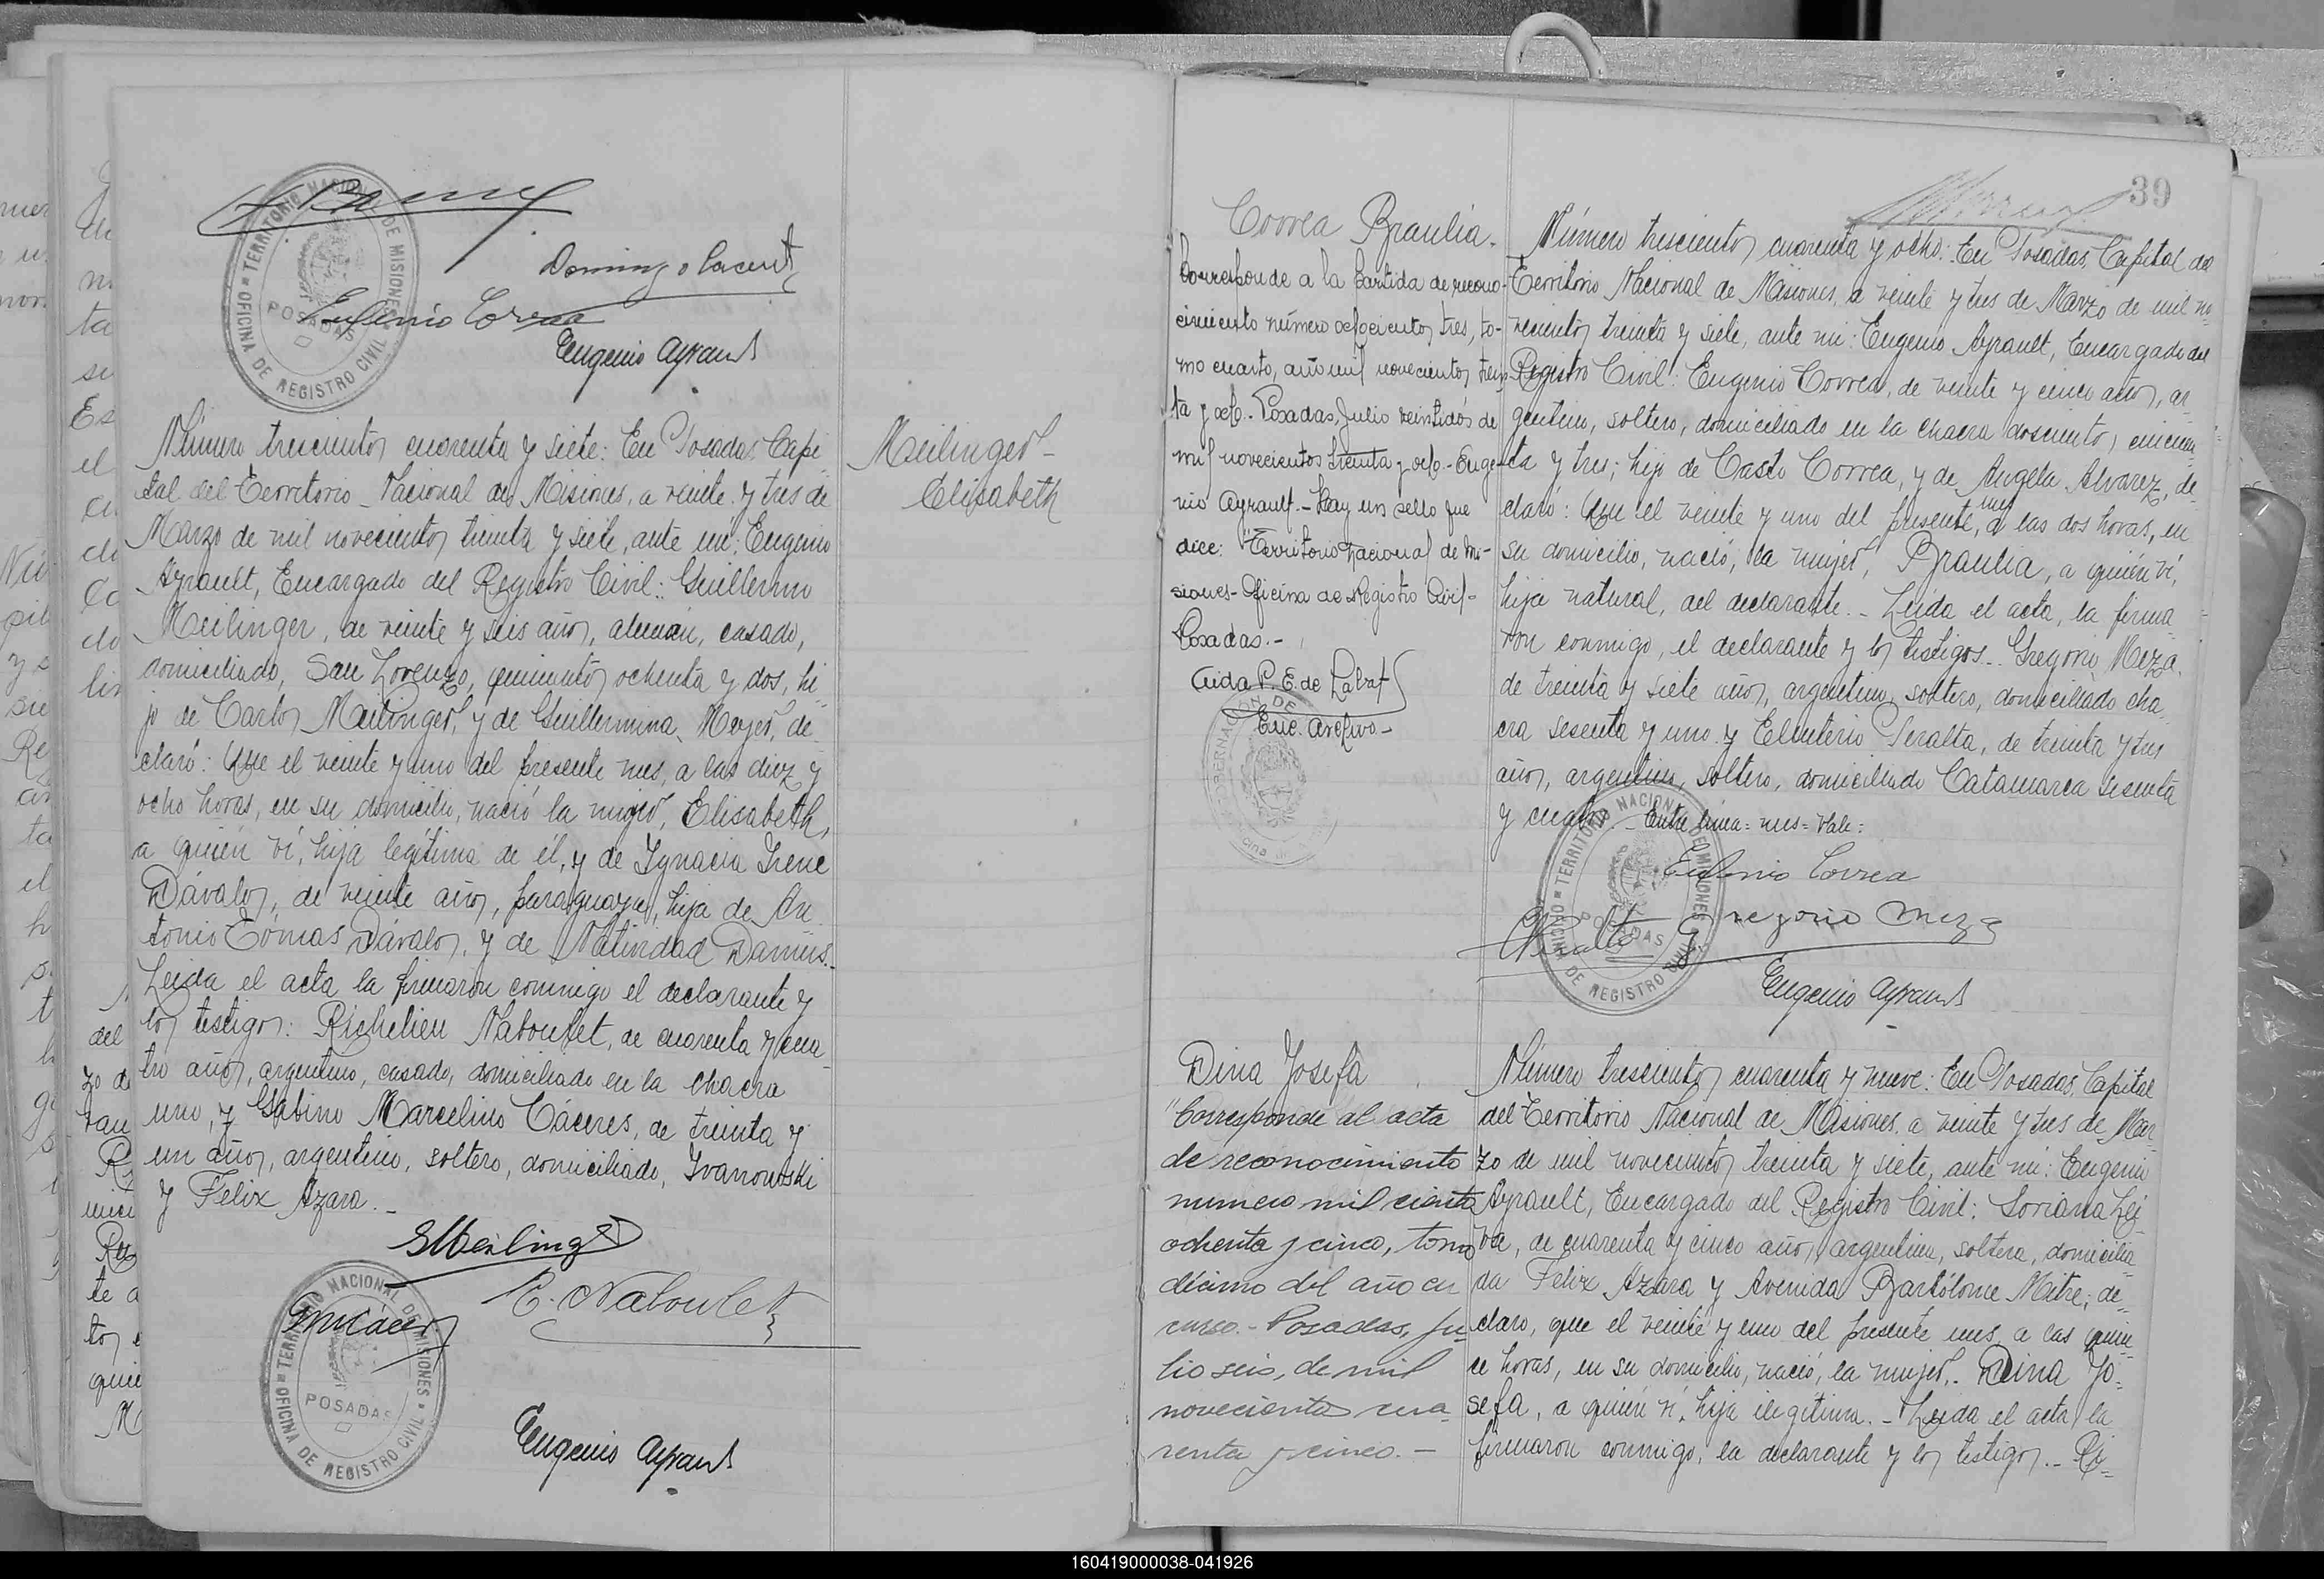 Domingo
Eugenio Correa
Eugenio Ayrault
TERRITORIO NACIONAL DE MISIONES
OFICINA DE REGISTRO CIVIL
POSADAS
Número trescientos cuarenta y siete: En Posadas, Capi-
tal del Territorio Nacional de Misiones, a veinte y tres de
Marzo de mil novecientos treinta y siete, ante mi: Eugenio
Ayrault, Encargado del Registro Civil: Guillermo
Meilinger, de veinte y seis años, alemán, casado,
domiciliado, San Lorenzo, quinientos ochenta y dos, hi-
jo de Carlos Meilinger, y de Guillermina Meyer, de-
claró: Que el veinte y uno del presente mes, a las diez y
ocho horas, en su domicilio, nació la mujer, Elisabeth,
a quién ví, hija legítima de él, y de Ygnacia Irene
Dávalos, de veinte años, paraguaya, hija de An-
tonio Tomas Dávalos, y de Natividad
Leida el acta la firmaron conmigo el declarante y
los testigos: Richelieu Naboulet, de cuarenta y cua-
tro años, argentino, casado, domiciliado en la chacra
uno, y Gabino Marcelino Cáceres, de treinta y
un años, argentino, soltero, domiciliado, Ivanowski
y Felix Azara.-
GMeilinger
R. Naboulet
GMCáceres
TERRITORIO NACIONAL DE MISIONES
OFICINA DE REGISTRO CIVIL
POSADAS
Eugenio Ayrault
Meilinger-
Elisabeth
39
Correa Braulia.
Corresponde a la partida de recono-
cimiento número ochocientos tres, to-
mo cuarto, año mil novecientos trein-
ta y ocho.- Posadas, Julio veintidós de
mil novecientos treinta y ocho.- Euge-
nio Ayrault.- Hay un sello que
dice: "Territorio Nacional de Mi-
siones- Oficina de Registro Civil-
Posadas.-
Aida P. E. de
Enc. Archivo.-
Número trescientos cuarenta y ocho: En Posadas, Capital del
Territorio Nacional de Misiones, a veinte y tres de Marzo de mil no-
vecientos treinta y siete, ante mi: Eugenio Ayrault, Encargado del
Registro Civil: Eugenio Correa, de veinte y cinco años, ar-
gentino, soltero, domiciliado en la chacra doscientos cincuen-
ta y tres; hijo de Casto Correa, y de Angela Alvarez, de-
mes
claró: Que el veinte y uno del presente, a las dos horas, en
su domicilio, nació, la mujer, Braulia, a quién ví,
hija natural, del declarante.- Leida el acta, la firma-
ron conmigo, el declarante y los testigos.- Gregorio Meza,
de treinta y siete años, argentino, soltero, domiciliado cha-
cra sesenta y uno y Eleuterio Peralta, de treinta y tres
años, argentino, soltero, domiciliado Catamarca sesenta
y cuatro.- Entre línea= mes= Vale:
Eugenio Correa
Gregorio Meza
EPeralta
TERRITORIO NACIONAL DE MISIONES
OFICINA DE REGISTRO CIVIL
POSADAS
Eugenio Ayrault
Dina Josefa
"Corresponde al acta
de reconocimiento
numero mil ciento
ochenta y cinco, tomo
décimo del año en
curso.- Posadas, Ju-
lio seis, de mil
novecientos cua-
renta y cinco.-
Número trescientos cuarenta y nueve: En Posadas, Capital
del Territorio Nacional de Misiones, a veinte y tres de Mar-
zo de mil novecientos treinta y siete, ante mi: Eugenio
Ayrault, Encargado del Registro Civil: Soriana Lei-
va, de cuarenta y cinco años, argentina, soltera, domicilia-
da Felix Azara y Avenida Bartólome Mitre; de-
claro, que el veinte y uno del presente mes, a las quin-
ce horas, en su domicilio, nació, la mujer,. Dina Jo-
sefa, a quién ví, hija ilegítima.- Leida el acta, la
firmaron conmigo, la declarante y los testigos.- Ri-
160419000038-041926